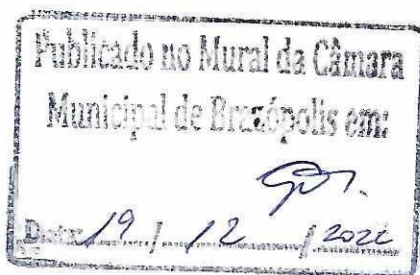 Publicado no Mural da Câmara
Municipal de Brazópolis em:
Data: 19 / 12 / 2022